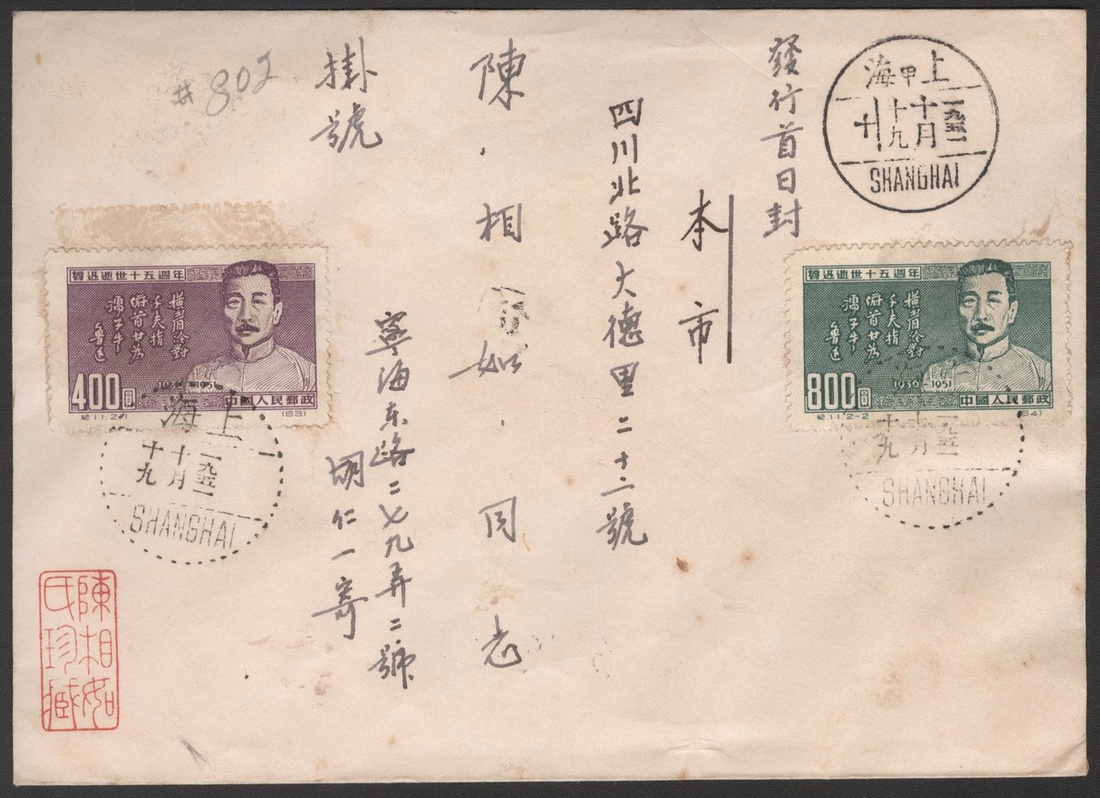 上海甲
一九五一
十月
十九
SHANGHAI
發行首日封
本市
四川北路大德里二十二號
陳相如同志
掛號
寧海东路二七九弄二號
胡仁一寄
#802
魯迅逝世十五週年
橫眉冷對
千夫指
俯首甘為
孺子牛
魯迅
1936-1951
800圓
中國人民郵政
紀11.2-2
(64)
一九五一
十月
十九
SHANGHAI
魯迅逝世十五週年
橫眉冷對
千夫指
俯首甘為
孺子牛
魯迅
1936-1951
400圓
中國人民郵政
紀11.2-1
(63)
上海
一九五一
十月
十九
SHANGHAI
陳相如
氏珍臧